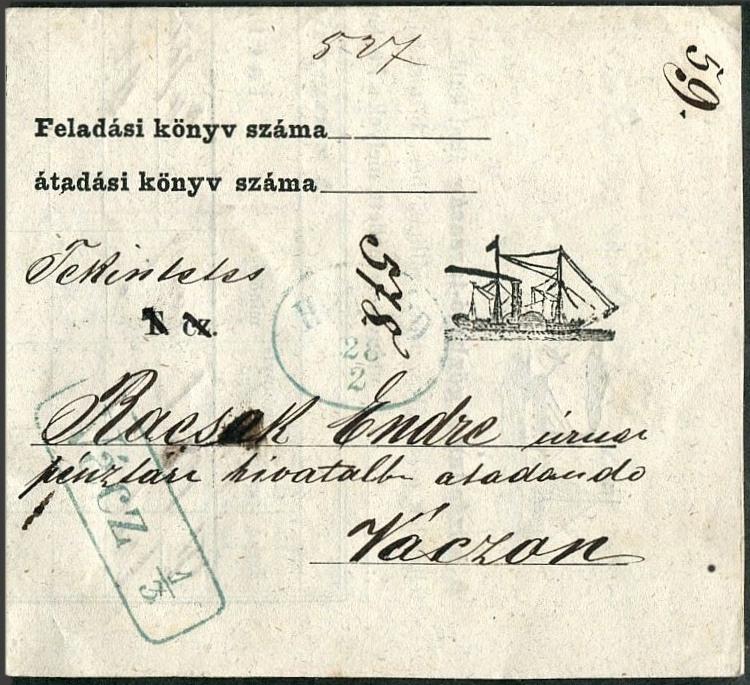 527
59.
Feladási könyv száma
átadási könyv száma
Tekintetes
578
T. cz.
28
2
Racsek Endre úrnak
penztári hivatalb atadando
Váczon